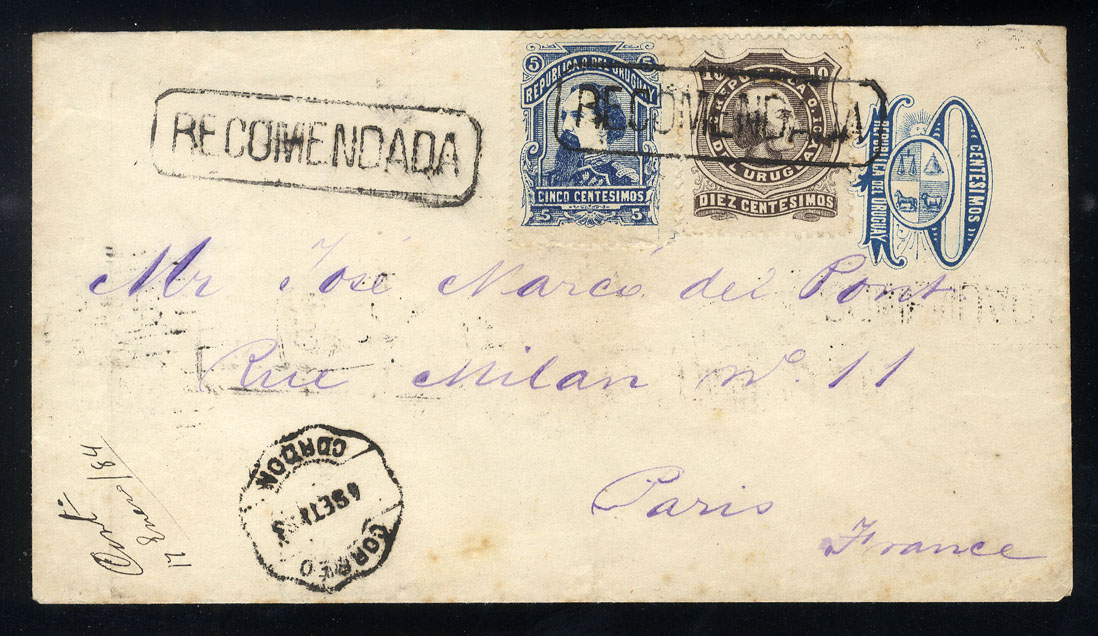 RECOMENDADA
5 5
REPUBLICA O. DEL URUGUAY
CINCO CENTESIMOS
5 5
RECOMENDADA
10 10
REPUBLICA O.
DEL URUGUAY
DIEZ CENTESIMOS
CENTESIMOS
REPUBLICA DEL URUGUAY
Mr José Marcó del Pont
Rue Milan No. 11
Paris
France
CORREO
SET
CORDON
17 Enero/84